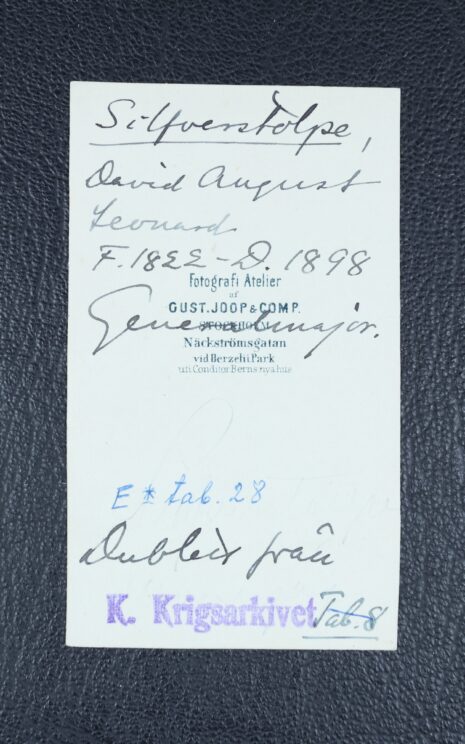 Silfverstolpe,
David August
Leonard
F. 1822 - D. 1898
Fotografi Atelier
af
GUST. JOOP & COMP.
STOCKHOLM
Generalmajor.
Näckströmsgatan
vid Berzelii Park
uti Conditor Berns nya hus
E * tab. 28
Dublett från
K. Krigsarkivet Tab. 8